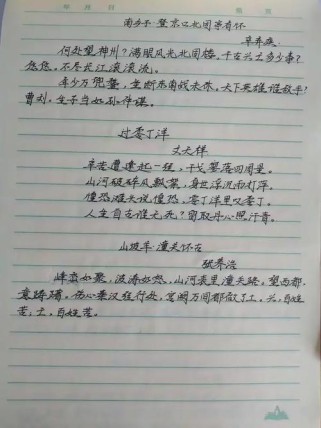 南乡子·登京口北固亭有怀
辛弃疾
何处望神州？满眼风光北固楼。千古兴亡多少事？
悠悠，不尽长江滚滚流。
年少万兜鍪，坐断东南战未休。天下英雄谁敌手？
曹刘，生子当如孙仲谋。
过零丁洋
文天祥
辛苦遭逢起一经，干戈寥落四周星。
山河破碎风飘絮，身世浮沉雨打萍。
惶恐滩头说惶恐，零丁洋里叹零丁。
人生自古谁无死？留取丹心照汗青。
山坡羊·潼关怀古
张养浩
峰峦如聚，波涛如怒，山河表里潼关路。望西都，
意踌躇。伤心秦汉经行处，宫阙万间都做了土。兴，百姓
苦；亡，百姓苦。